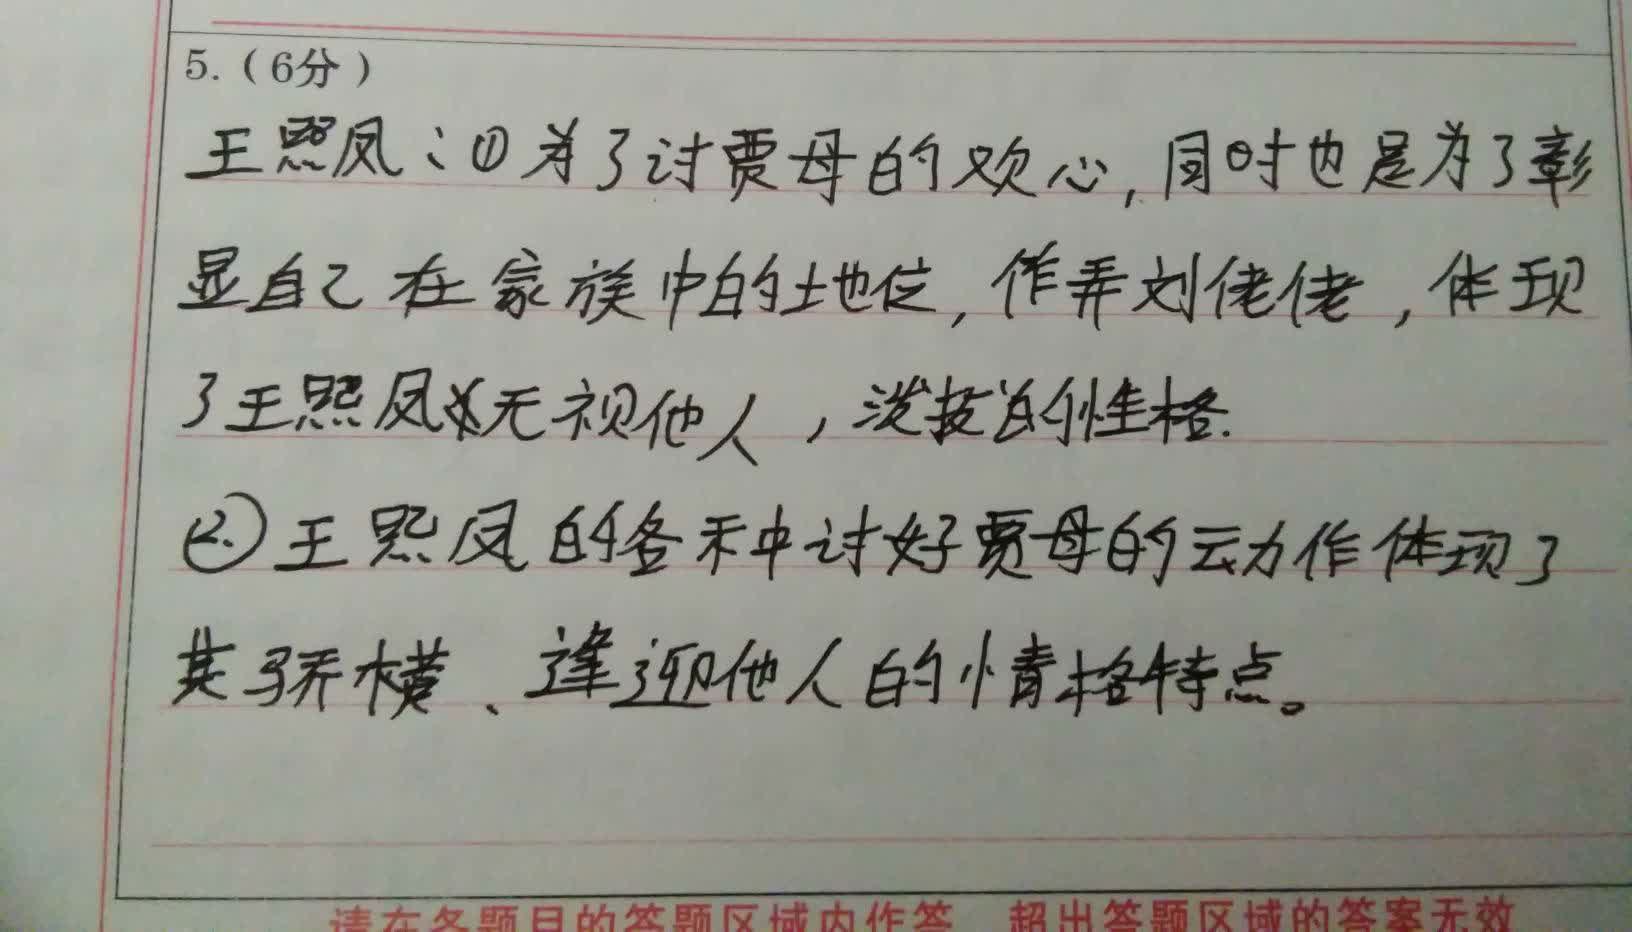 5.（6分）
王熙凤：①为了讨贾母的欢心，同时也是为了彰
显自己在家族中的地位，作弄刘佬佬，体现
了王熙凤无视他人，泼技的性格.
②王熙凤的各种讨好贾母的动作体现了
其骄横、逢迎他人的情格特点。
请在各题目的答题区域内作答 超出答题区域的答案无效